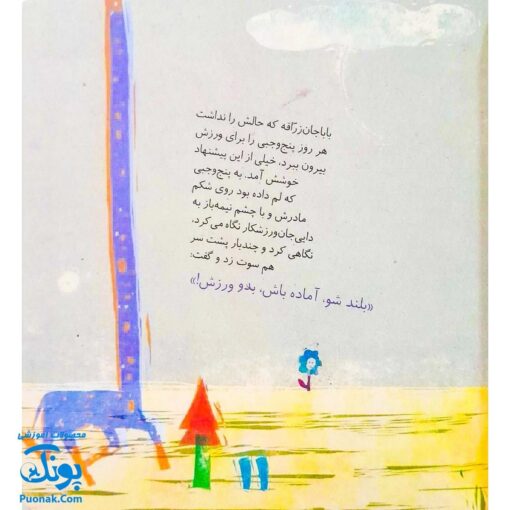 باباجان‌زرّافه که حالش را نداشت
هر روز پنج‌وجبی را برای ورزش
بیرون ببرد، خیلی از این پیشنهاد
خوشش آمد. به پنج‌وجبی
که لم داده بود روی شکم
مادرش و با چشم نیمه‌باز به
دایی‌جان‌ورزشکار نگاه می‌کرد،
نگاهی کرد و چندبار پشت سر
هم سوت زد و گفت:
«بلند شو، آماده باش، بدو ورزش!»
محصولات آموزشی
پونک
Puonak.Com